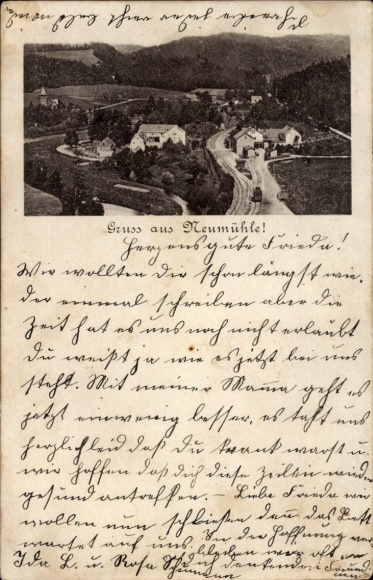 Gruss aus Neumühle!
Herzensgute Frieda!
Wir wollten Dir schon längst wie-
der einmal schreiben aber die
Zeit hat es uns noch nicht erlaubt
Du weißt ja wie es jetzt bei uns
steht. Mit meiner Mama geht es
jetzt ein wenig besser, es tuht uns
herzlich leid daß Du krank warst u.
wir hoffen daß dich diese Zeilen wieder
gesund antreffen. – Liebe Frieda wir
wollen nun schließen denn das Bett
wartet auf uns. In der Hoffnung
Ida L. u. Rosa